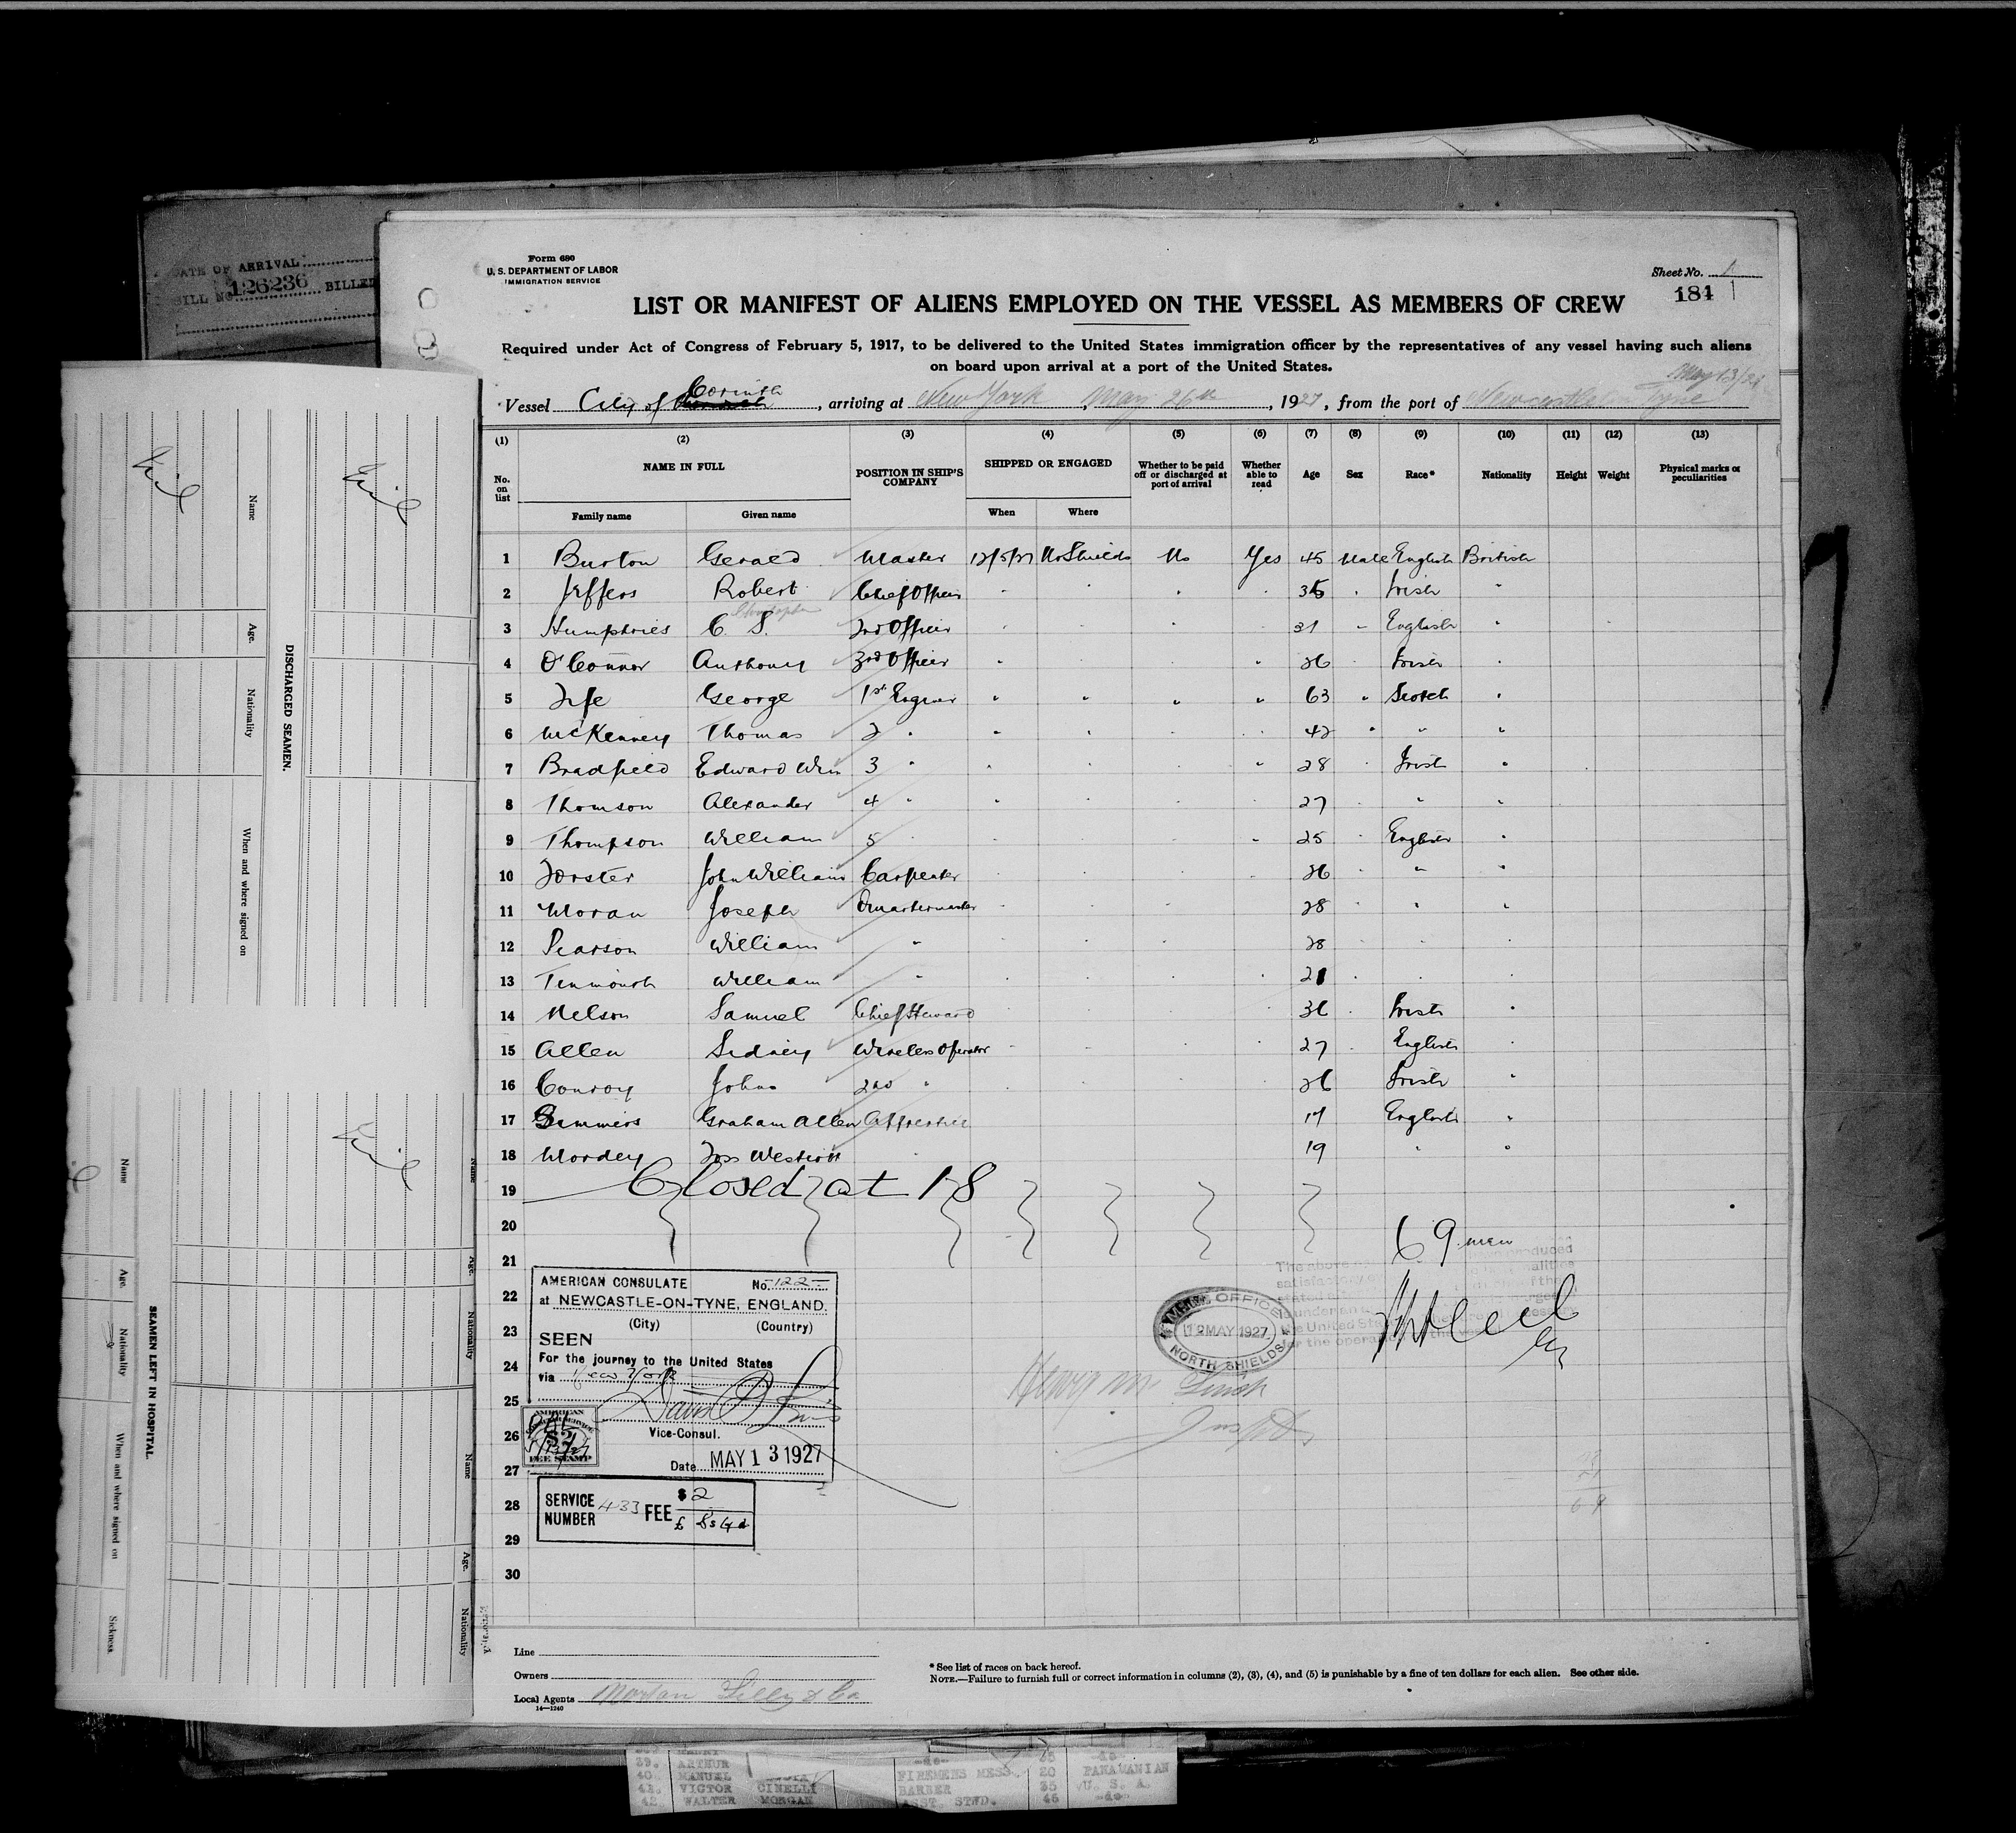 DATE OF ARRIVAL
BILL NO. 126236 BILLED
Form 680
U. S. DEPARTMENT OF LABOR
IMMIGRATION SERVICE
Sheet No. 1
184
LIST OR MANIFEST OF ALIENS EMPLOYED ON THE VESSEL AS MEMBERS OF CREW
Required under Act of Congress of February 5, 1917, to be delivered to the United States immigration officer by the representatives of any vessel having such aliens
on board upon arrival at a port of the United States.
May 13/27
Vessel City of Corinth, arriving at New York, May 26th, 1927, from the port of Newcastle on Tyne
(1) (2) (3) (4) (5) (6) (7) (8) (9) (10) (11) (12) (13)
No. on list NAME IN FULL POSITION IN SHIP'S COMPANY SHIPPED OR ENGAGED Whether to be paid off or discharged at port of arrival Whether able to read Age Sex Race* Nationality Height Weight Physical marks or peculiarities
Family name Given name When Where
1 Burton Gerald Master 12/5/27 No Shields No Yes 45 Male English British
2 Jeffers Robert Chief Officer " " " " 35 " Irish "
Christopher
3 Humphries C. S. 2nd Officer " " " " 31 " English "
4 O'Connor Anthony 3rd Officer " " " " 26 " Irish "
5 Fyfe George 1st Engineer " " " " 63 " Scotch "
6 McKenney Thomas 2 " " " " " 42 " " "
7 Bradfield Edward Wm 3 " " " " " 28 " Irish "
8 Thomson Alexander 4 " " " " " 27 " " "
9 Thompson William 5 " " " " " 25 " English "
10 Forster John William Carpenter " " " " 36 " " "
11 Moran Joseph Quartermaster " " " " 28 " " "
12 Pearson William " " " " " 28 " " "
13 Tinmouth William " " " " " 21 " " "
14 Nelson Samuel Chief Steward " " " " 36 " Irish "
15 Allen Sidney Wireless Operator " " " " 27 " English "
16 Conroy John 2nd " " " " " 26 " Irish "
17 Simmers Graham Allen Apprentice 17 English "
18 Wordey 19 " "
19 Closed at 18
20
69 men
21
22
23
24
25
26
27
28
29
30
AMERICAN CONSULATE No. 122
at NEWCASTLE-ON-TYNE, ENGLAND.
(City) (Country)
SEEN
For the journey to the United States
via New York
Vice-Consul.
Date MAY 13 1927
AMERICAN
$2
FEE STAMP
SERVICE NUMBER 433 FEE $2
£
OFFICE
12 MAY 1927
NORTH SHIELDS
Line
Owners
Local Agents Norton Lilly & Co.
14—1240
* See list of races on back hereof.
NOTE.—Failure to furnish full or correct information in columns (2), (3), (4), and (5) is punishable by a fine of ten dollars for each alien. See other side.
DISCHARGED SEAMEN.
Name Age. Nationality When and where signed on
Nil
Nil
SEAMEN LEFT IN HOSPITAL.
Name Age. Nationality When and where signed on Sickness
Nil
Name Age. Nationality
Name Age. Nationality
39. ARTHUR -do-
40. MANUEL FIREMENS MESS. 20 PANAMANIAN
41. VICTOR CINELLI BARBER 35 U. S. A.
42. WALTER MORGAN ASST. STWD. 46 -do-